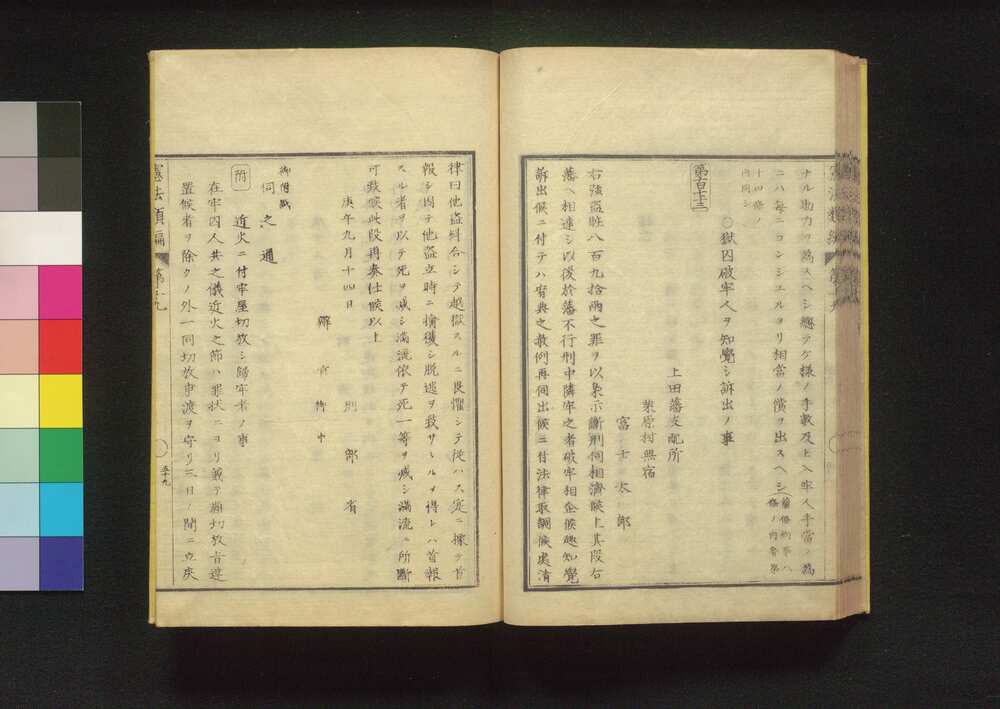 ナル助力ヲ為スヘシ總テケ様ノ手數及上入牢人手當ノ為
ニハ毎ニコンシユルヨリ相當ノ償ヲ出スヘシ
十四條ノ
内同シ
第百七十三
○獄囚破牢人ヲ知覺シ訴出ノ事
上田藩支配所
栗原村無宿
富士太郎
右強盗賍八百九拾兩之罪ヲ以梟示斷刑伺相濟候上其段右
藩ヘ相達シ以後於藩不行刑中隣牢之者破牢相企候趣知覺
訴出候ニ付テハ寛典之救例再伺出候ニ付法律取調候處清
律曰他盗糾合シテ越獄スルニ畏懼シテ從ハス定ニ據テ首
報シ因テ他盗立時ニ擒獲シ脱逃ヲ致サヽルヲ得レハ首報
スル者ヲ以テ死ヲ减シ滿流依テ死一等ヲ减シ滿流ニ所斷
可致候此段再奏仕候以上
庚午九月十四日
刑部省
辨官御中
御附紙
伺之通
附
近火ニ付牢屋切放シ歸牢者ノ事
在牢囚人共之儀近火之節ハ罪状ニヨリ
置候者ヲ除クノ外一同切放申渡ヲ守リ三日ノ間ニ立戻
憲法類編
第十九
五十九